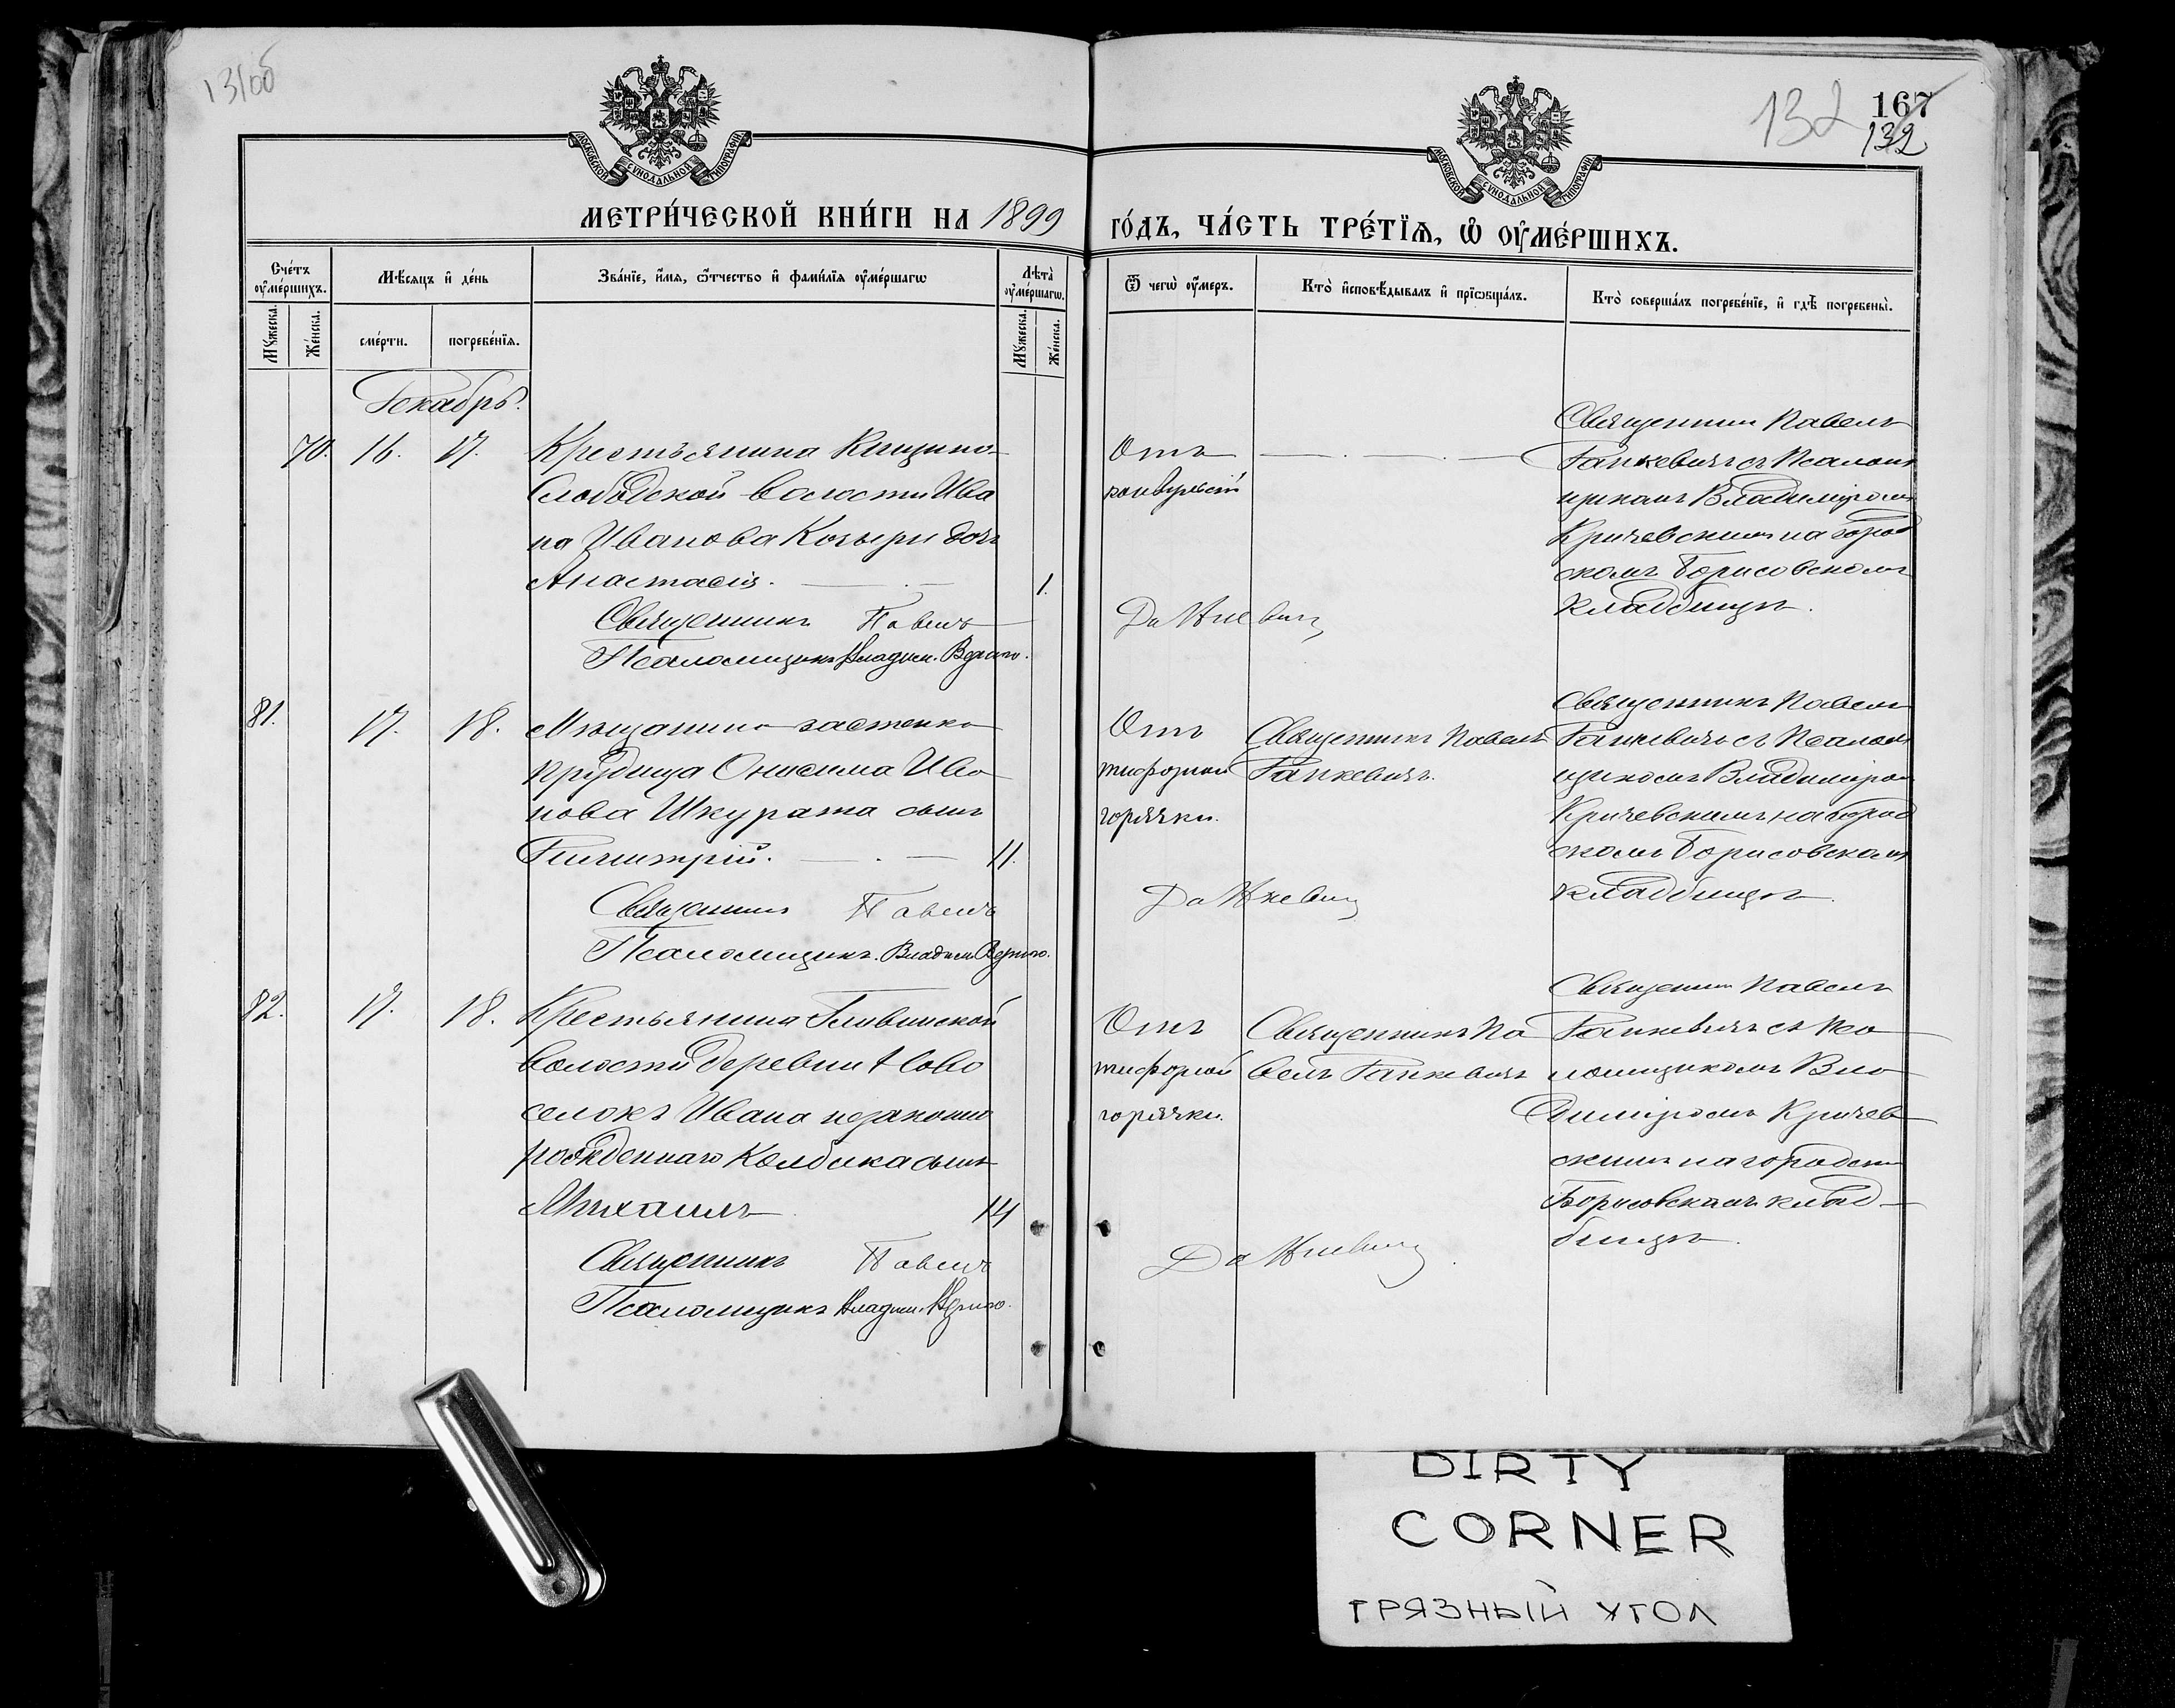 131об
132
167
132
МОСКОВСКОЙ СѴНОДАЛЬНОЙ ТИПОГРАФІИ
МОСКОВСКОЙ СѴНОДАЛЬНОЙ ТИПОГРАФІИ
МЕТРИ́ЧЕСКОЙ КНИ́ГИ НА 1899 ГО́ДЪ, ЧА́СТЬ ТРЕ́ТЇѦ, Ѡ҆ ОУ҆МЕ́РШИХЪ.
Сче́тъ оу҆ме́ршихъ.
Мꙋ́жеска.
Же́нска.
Мѣ́сяцъ и҆ де́нь
сме́рти.
погребе́нїѧ.
Зва́нїе, и҆́мѧ, ѻ҆́тчество и҆ фами́лїѧ оу҆ме́ршагѡ
Лѣта̀ оу҆ме́ршагѡ.
Мꙋ́жеска.
Же́нска.
Ѿ чегѡ̀ оу҆́меръ.
Кто̀ и҆сповѣ́дывалъ и҆ прїѡбща́лъ.
Кто̀ соверша́лъ погребе́нїе, и҆ гдѣ̀ погребены̀.
Декабрь.
70. 16. 17.
Крестьянина
Слободской волости Ива
на Иванова Козыри дочь
Анастасія. 1.
Священникъ Павелъ Данкевичъ
Псаломщикъ Владим.
Отъ
конвульсій
Священник Павелъ
Данкевичъ съ Псалом
щикомъ Владиміромъ
Кричевскимъ на город
скомъ Борисовскомъ
кладбищѣ.
81. 17. 18.
Мѣщанина застенка
Прудища Онисима Ива
нова Шкурата сынъ
Димитрій. 11.
Священникъ Павелъ Данкевичъ
Псаломщикъ. Владим.
Отъ
тифозной
горячки.
Священникъ Павелъ
Данкевичъ.
Священникъ Павелъ
Данкевичъ съ Псалом
щикомъ Владиміром
Кричевскимъ на город
скомъ Борисовскомъ
кладбищѣ.
82. 17. 18.
Крестьянина Гливинской
волости деревни Ново
селокъ Ивана незаконно
рожденнаго Колбика сынъ
Михаилъ 14
Священникъ Павелъ Данкевичъ
Псаломщикъ Владим.
Отъ
тифозной
горячки.
Священникъ Па
велъ Данкевичъ
Священник Павелъ
Данкевичъ съ Пса
ломщикомъ Вла
диміромъ Кричев
скимъ на городском
Борисовскомъ клад
бищѣ.
DIRTY
CORNER
ГРЯЗНЫЙ УГОЛ